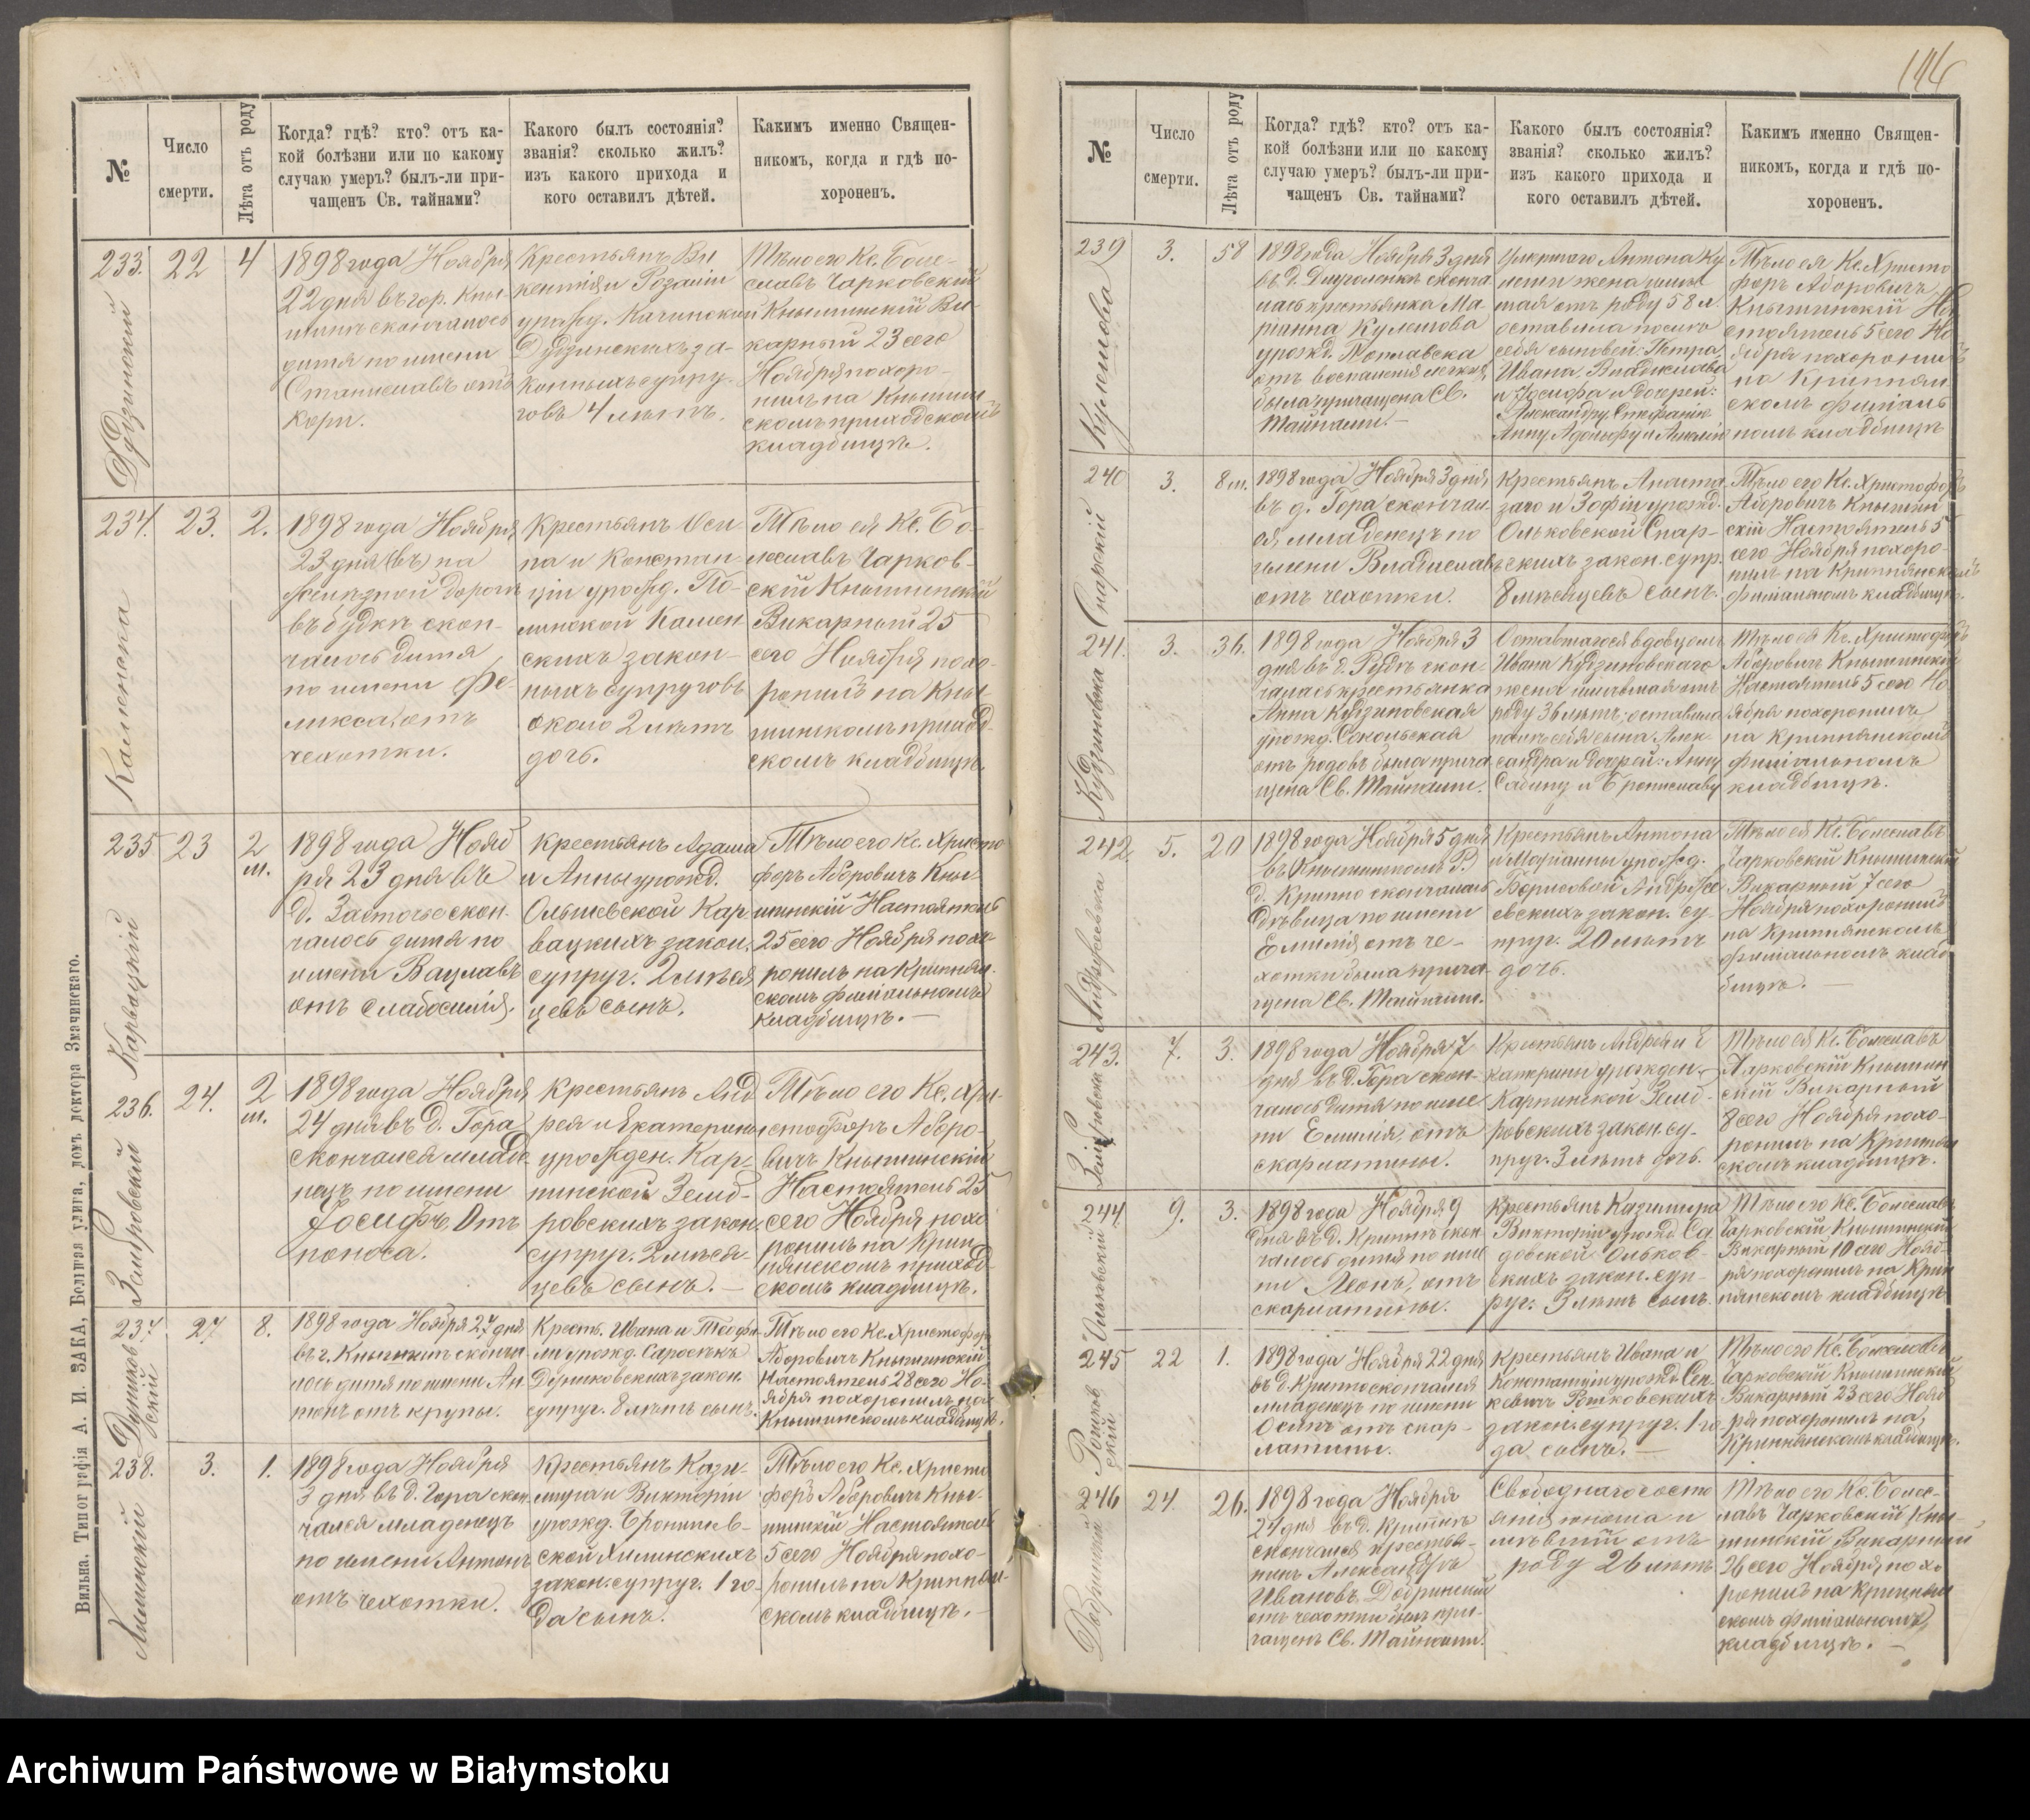 №
Число
смерти.
Лѣта отъ роду
Когда? гдѣ? кто? отъ ка-
кой болѣзни или по какому
случаю умеръ? былъ-ли при-
чащенъ Св. тайнами?
Какого былъ состоянія?
званія? сколько жилъ?
изъ какого прихода и
кого оставилъ дѣтей.
Какимъ именно Священ-
никомъ, когда и гдѣ по-
хороненъ.
233.
Дудзинский
22
4
1898 года Ноября
22 дня въ гор. Кны-
шинѣ скончалось
дитя по имени
Станиславъ отъ
кори.
Крестьянъ Ви
кентія и Розаліи
урожд. Качинской
Дудзинскихъ за-
конныхъ супру-
говъ 4 лѣтъ.
Тѣло его Кс. Боле-
славъ Чарковскій
Кнышинскій Ви-
карный 23 сего
Ноября похоро-
нилъ на Кнышин
скомъ приходскомъ
кладбищѣ.
234.
Каменска
23.
2.
1898 года Ноября
23 дня (въ) на
желѣзной дорогѣ
въ будкѣ скон-
чалось дитя
по имени Фе-
ликса, отъ
чахотки.
Крестьянъ Оси
па и Констан
ціи урожд. По-
линской Камен
скихъ закон-
ныхъ супруговъ
около 2 лѣтъ
дочь.
Тѣло ея Кс. Бо-
леславъ Чарков-
скій Кнышинский
Викарный 25
сего Ноября похо-
ронилъ на Кны-
шинскомъ приход
скомъ кладбищѣ.
235
Карвацкій
23
2
м.
1898 года Нояб
ря 23 дня въ
д. Засточье скон-
чалось дитя по
имени Вацлавъ
отъ слабосилія.
Крестьянъ Адама
и Анны урожд.
Ольшевской Кар
вацкихъ закон.
супруг. 2 мѣся
цевъ сынъ.
Тѣло его Кс. Христо
форъ Аборовичъ Кны-
шинскій Настоятель
25 сего Ноября похо-
ронилъ на Крипнян.
скомъ филіальномъ
кладбищѣ. —
236.
Замбровскій
24.
2
м.
1898 года Ноября
24 дня въ д. Гора
скончался младе-
нецъ по имени
Іосифъ отъ
поноса.
Крестьянъ Анд
рея и Екатерины
урожден. Кар-
пинской Земб-
ровскихъ закон.
супруг. 2 мѣся-
цевъ сынъ. —
Тѣло его Кс. Хри-
стофоръ Аборо-
вичъ Кнышинскій
Настоятель 25
сего Ноября похо
ронилъ на Крип
нянскомъ приход-
скомъ кладбищѣ.
237.
Дутковскій
27.
8.
1898 года Ноября 27 дня
въ г. Кнышинѣ сконча
лось дитя по имени Ан
тонъ отъ крупы.
Кресть. Ивана и Теофи-
ли урожд.
супруг. 8 лѣтъ сынъ.
Тѣло его Кс. Христофоръ
Аборовичъ Кнышинскій
Настоятель 28 сего Но-
ября похоронилъ на
Кнышинскомъ кладбищѣ.
238.
3.
1.
1898 года Ноября
3 дня въ д. Гора скон.
чался младенецъ
по имени Антонъ
отъ чахотки.
Крестьянъ Кази-
мира и Викторіи
урожд.
ской Хилинскихъ
закон. супруг. 1 го-
да сынъ.
Тѣло его Кс. Христо
форъ Аборовичъ Кны-
шинскій Настоятель
5 сего Ноября похо-
ронилъ на Крипнян-
скомъ кладбищѣ. —
Вильна. Типографія А. И. ЗАКА, Большая улица, домъ доктора Змачинскаго.
144
№
Число
смерти.
Лѣта отъ роду
Когда? гдѣ? кто? отъ ка-
кой болѣзни или по какому
случаю умеръ? былъ-ли при-
чащенъ Св. тайнами?
Какого былъ состоянія?
званія? сколько жилъ?
изъ какого прихода и
кого оставилъ дѣтей.
Какимъ именно Священ-
никомъ, когда и гдѣ по-
хороненъ.
239
Кулешова
3.
58
1898 года Ноября 3 дня
въ д. сконча
лась крестьянка Ма
рianна Кулешова
урожд.
отъ воспаленія легкихъ,
была причащена Св.
Тайнами. —
Антона Ку
леши жена
отъ роду 58 л.
оставила после
себя сыновей: Петра,
Ивана, Владислава
и Іосифа и дочерей:
Александру, Стефанію
Анну
Тѣло ея Кс. Христо
форъ Аборовичъ
Кнышинскій На
стоятель 5 сего Но
ября похоронилъ
на Крипнян
скомъ филіаль
номъ кладбищѣ
240
Снарский
3.
8 м.
1898 года Ноября 3 дня
въ д. Гора скончал.
ся младенецъ по
имени Владиславъ
отъ чахотки.
Крестьянъ
и Зофіи урожд.
Ольковской Снар-
скихъ закон. супр.
8 мѣсяцевъ сынъ.
Тѣло его Кс. Христофоръ
Аборовичъ Кнышин
скій Настоятель 5
сего Ноября похоро-
нилъ на Крипнянскомъ
филіальномъ кладбищѣ.
241.
Кудзиновска
3.
36.
1898 года Ноября 3
дня въ д. Рудѣ скон
чалась крестьянка
Анна Кудзиновская
урожд. Сокольская
отъ родовъ была прича
щена Св. Тайнами.
Оставшагося вдовцомъ
Ивана Кудзиновскаго
жена имѣвшая отъ
роду 36 лѣтъ; оставила
послѣ себя сына Алек
сандра и дочерей: Анну
Сабину и Брониславу
Тѣло ея Кс. Христофоръ
Аборовичъ Кнышинскій
Настоятель 5 сего Но
ября похоронилъ
на Крипнянскомъ
филіальномъ
кладбищѣ.
242.
5.
20
1898 года Ноября 5 дня
въ Кнышинскомъ П.
д. Крипно скончалась
дѣвица по имени
Емилія отъ ча-
хотки была прича-
щена Св. Тайнами.
Крестьянъ Антона
и Маріанны урожд.
Борисовой Андржее
евскихъ закон. су-
пруг. 20 лѣтъ
дочь.
Тѣло ея Кс. Болеславъ
Чарковский Кнышинскій
Викарный 7 сего
Ноября похоронилъ
на Крипнянскомъ
филіальномъ клад
бищѣ. —
243.
7.
3.
1898 года Ноября 7
дня въ д. Гора скон-
чалось дитя по име
ни Емилія, отъ
скарлатины.
Крестьянъ Андрея и Е
катерины урожден.
Карпинской Земб-
ровскихъ закон. су-
пруг. 3 лѣтъ дочь.
Тѣло ея Кс. Болеславъ
Чарковскій Кнышин
скій Викарный
8 сего Ноября похо-
ронилъ на Крипнян
скомъ кладбищѣ.
244.
Ольковскій
9.
3.
1898 года Ноября 9
дня въ д. Крипнѣ скон
чалось дитя по име
ни Леонъ, отъ
скарлатины.
Крестьянъ Казимира
Викторіи урожд. Са
довской Ольков-
скихъ закон. суп-
руг. 3 лѣтъ сынъ.
Тѣло его Кс. Болеславъ
Чарковскій Кнышинскій
Викарный 10 сего Нояб-
ря похоронилъ на Крип
нянскомъ кладбищѣ
245
Рошковскій
22
1.
1898 года Ноября 22 дня
въ д. Крипно скончался
младенецъ по имени
Осипъ отъ скар-
латины.
Крестьянъ Ивана и
Константціи урожд. Сен-
кевичъ Рошковскихъ
закон. супруг. 1 го
да сынъ. —
Тѣло его Кс. Болеславъ
Чарковскій Кнышинскій
Викарный 23 сего Нояб
ря похоронилъ на
Крипнянскомъ кладбищѣ.
246
Добринскій
24.
26.
1898 года Ноября
24 дня въ д. Крипнѣ
скончался крестья-
нинъ Александръ
Ивановъ Добринскій
отъ чахотки былъ при-
чащенъ Св. Тайнами.
Свободнаго состо
янія юноша и
мѣвшій отъ
роду 26 лѣтъ
Тѣло его Кс. Болес-
лавъ Чарковскій Кны-
шинскій Викарный
26 сего Ноября похо
ронилъ на Крипнян
скомъ филіальномъ
кладбищѣ. —
Archiwum Państwowe w Białymstoku